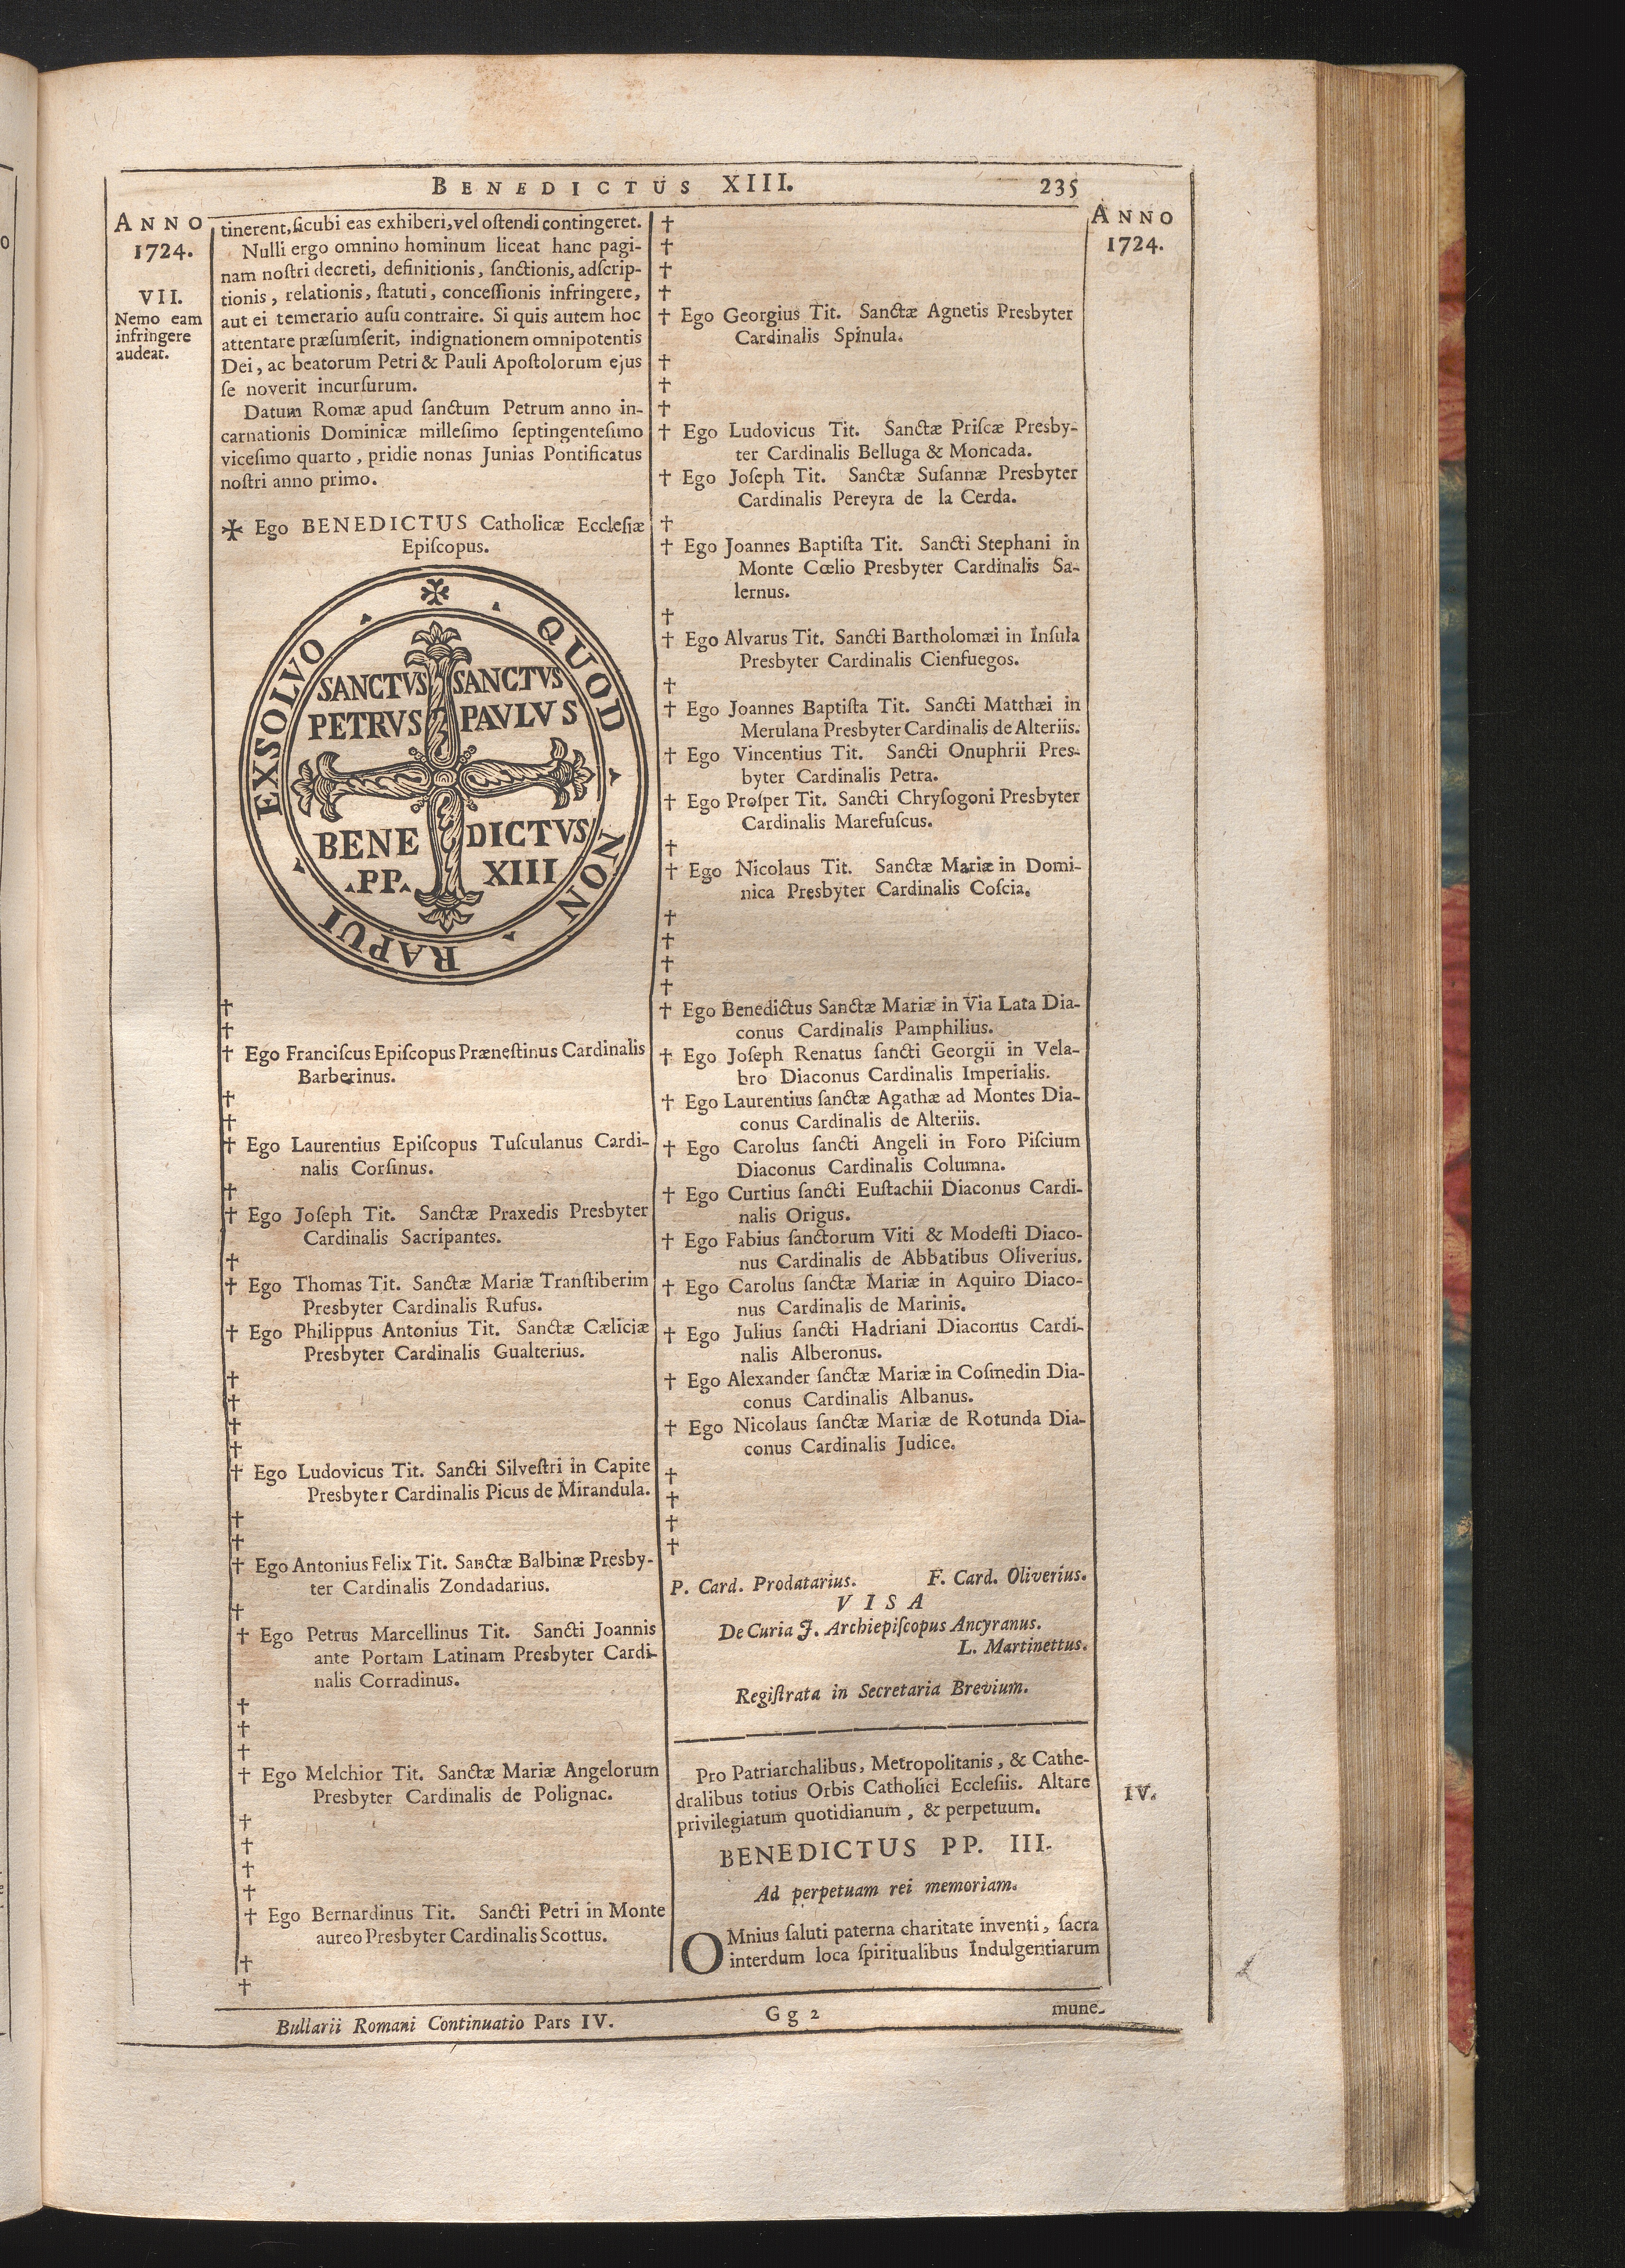 BENEDICTUS XIII. 235
ANNO
1724.
VII.
Nemo eam
infringere
audeat.
tinerent, ſicubi eas exhiberi, vel oſtendi contingeret.
Nulli ergo omnino hominum liceat hanc pagi-
nam noſtri decreti, definitionis, ſanctionis, adſcrip-
tionis, relationis, ſtatuti, conceſſionis infringere,
aut ei temerario auſu contraire. Si quis autem hoc
attentare præſumſerit, indignationem omnipotentis
Dei, ac beatorum Petri & Pauli Apoſtolorum ejus
ſe noverit incurſurum.
Datum Romæ apud ſanctum Petrum anno in-
carnationis Dominicæ milleſimo ſeptingenteſimo
viceſimo quarto, pridie nonas Junias Pontificatus
noſtri anno primo.
✠ Ego BENEDICTUS Catholicæ Eccleſiæ
Epiſcopus.
✠ QUOD NON RAPUI EXSOLVO
SANCTVS SANCTVS
PETRVS PAVLVS
BENE DICTVS
PP. XIII
†
†
† Ego Franciſcus Epiſcopus Præneſtinus Cardinalis
Barberinus.
†
†
† Ego Laurentius Epiſcopus Tuſculanus Cardi-
nalis Corſinus.
†
† Ego Joſeph Tit. Sanctæ Praxedis Presbyter
Cardinalis Sacripantes.
†
† Ego Thomas Tit. Sanctæ Mariæ Tranſtiberim
Presbyter Cardinalis Rufus.
† Ego Philippus Antonius Tit. Sanctæ Cæliciæ
Presbyter Cardinalis Gualterius.
†
†
†
†
† Ego Ludovicus Tit. Sancti Silveſtri in Capite
Presbyter Cardinalis Picus de Mirandula.
†
†
† Ego Antonius Felix Tit. Sanctæ Balbinæ Presby-
ter Cardinalis Zondadarius.
†
† Ego Petrus Marcellinus Tit. Sancti Joannis
ante Portam Latinam Presbyter Cardi-
nalis Corradinus.
†
†
†
† Ego Melchior Tit. Sanctæ Mariæ Angelorum
Presbyter Cardinalis de Polignac.
†
†
†
†
† Ego Bernardinus Tit. Sancti Petri in Monte
aureo Presbyter Cardinalis Scottus.
†
†
†
†
†
†
† Ego Georgius Tit. Sanctæ Agnetis Presbyter
Cardinalis Spinula.
†
†
†
† Ego Ludovicus Tit. Sanctæ Priſcæ Presby-
ter Cardinalis Belluga & Moncada.
† Ego Joſeph Tit. Sanctæ Suſannæ Presbyter
Cardinalis Pereyra de la Cerda.
†
† Ego Joannes Baptiſta Tit. Sancti Stephani in
Monte Cœlio Presbyter Cardinalis Sa-
lernus.
†
† Ego Alvarus Tit. Sancti Bartholomæi in Inſula
Presbyter Cardinalis Cienfuegos.
†
† Ego Joannes Baptiſta Tit. Sancti Matthæi in
Merulana Presbyter Cardinalis de Alteriis.
† Ego Vincentius Tit. Sancti Onuphrii Pres-
byter Cardinalis Petra.
† Ego Proſper Tit. Sancti Chryſogoni Presbyter
Cardinalis Marefuſcus.
†
† Ego Nicolaus Tit. Sanctæ Mariæ in Domi-
nica Presbyter Cardinalis Coſcia.
†
†
†
†
† Ego Benedictus Sanctæ Mariæ in Via Lata Dia-
conus Cardinalis Pamphilius.
† Ego Joſeph Renatus ſancti Georgii in Vela-
bro Diaconus Cardinalis Imperialis.
† Ego Laurentius ſanctæ Agathæ ad Montes Dia-
conus Cardinalis de Alteriis.
† Ego Carolus ſancti Angeli in Foro Piſcium
Diaconus Cardinalis Columna.
† Ego Curtius ſancti Euſtachii Diaconus Cardi-
nalis Origus.
† Ego Fabius ſanctorum Viti & Modeſti Diaco-
nus Cardinalis de Abbatibus Oliverius.
† Ego Carolus ſanctæ Mariæ in Aquiro Diaco-
nus Cardinalis de Marinis.
† Ego Julius ſancti Hadriani Diaconus Cardi-
nalis Alberonus.
† Ego Alexander ſanctæ Mariæ in Coſmedin Dia-
conus Cardinalis Albanus.
† Ego Nicolaus ſanctæ Mariæ de Rotunda Dia-
conus Cardinalis Judice.
†
†
†
†
P. Card. Prodatarius. F. Card. Oliverius.
VISA
De Curia J. Archiepiſcopus Ancyranus.
L. Martinettus.
Regiſtrata in Secretaria Brevium.
Pro Patriarchalibus, Metropolitanis, & Cathe-
dralibus totius Orbis Catholici Eccleſiis. Altare
privilegiatum quotidianum, & perpetuum.
BENEDICTUS PP. III.
Ad perpetuam rei memoriam.
OMnius ſaluti paterna charitate inventi, ſacra
interdum loca ſpiritualibus Indulgentiarum
mune-
ANNO
1724.
IV.
Bullarii Romani Continuatio Pars IV. Gg 2